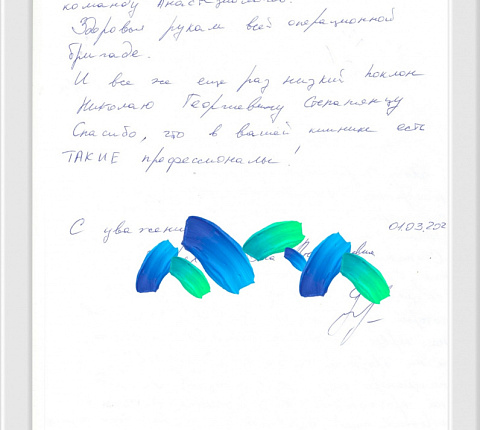 команду Анастезиологов.
Здоровья рукам всей операционной
бригаде.
И все же еще раз низкий поклон
Николаю Георгиевичу Степанянцу
Спасибо, что в вашей клинике есть
ТАКИЕ профессионалы!
С уважени 01.03.202